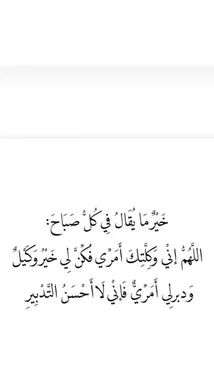 خَيْرُ مَا يُقَالُ فِي كُلِّ صَبَاحَ:
اللَّهُمَّ إنِّي وَكِلَّتِكَ أَمَرْي فَكُنَّ لِي خَيْرُ وَكَيْلٌ
وَدبرلِي أَمَرْيٌّ فَإنِّي لَا أَحْسَنُ التَّدْبِيرِ